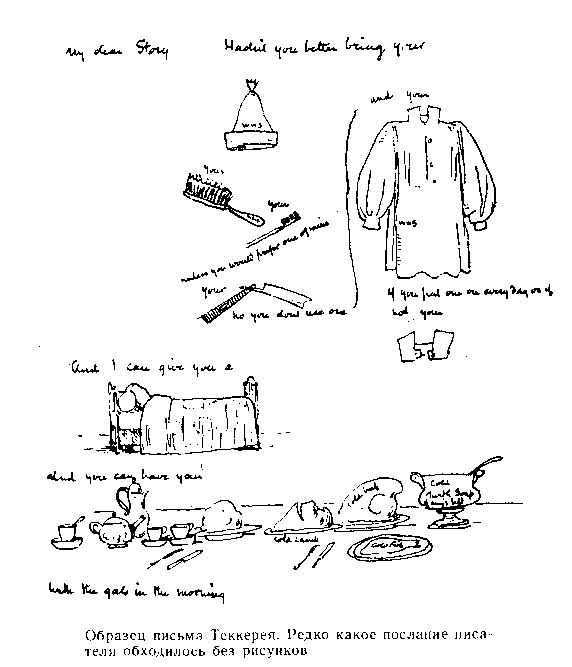 My dear Story Hadn't you better bring your
WWS
and your
Your
Your
unless you would prefer one of mine
WWS
Your
no you dont use one
if you put one on every day or if
not your
And I can give you a
And you can have your
Cold
Turtle Soup
Cold Lamb
with the gals in the morning
Образец письма Теккерея. Редко какое послание писа-
теля обходилось без рисунков